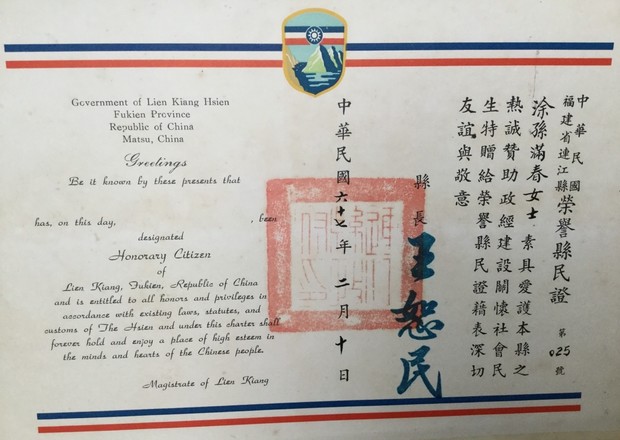 Government of Lien Kiang Hsien
Fukien Province
Republic of China
Matsu, China
Greetings
Be it known by these presents that
has, on this day, , been
designated
Honorary Citizen
of
Lien Kiang, Fukien, Republic of China
and is entitled to all honors and privileges in
accordance with existing laws, statutes, and
customs of The Hsien and under this charter shall
forever hold and enjoy a place of high esteem in
the minds and hearts of the Chinese people.
Magistrate of Lien Kiang
中華民國
福建省連江縣榮譽縣民證
第025號
涂孫滿春女士素具愛護本縣之
熱誠贊助政經建設關懷社會民
生特贈給榮譽縣民證藉表深切
友誼與敬意
縣長王恕民
中華民國六十七年二月十日